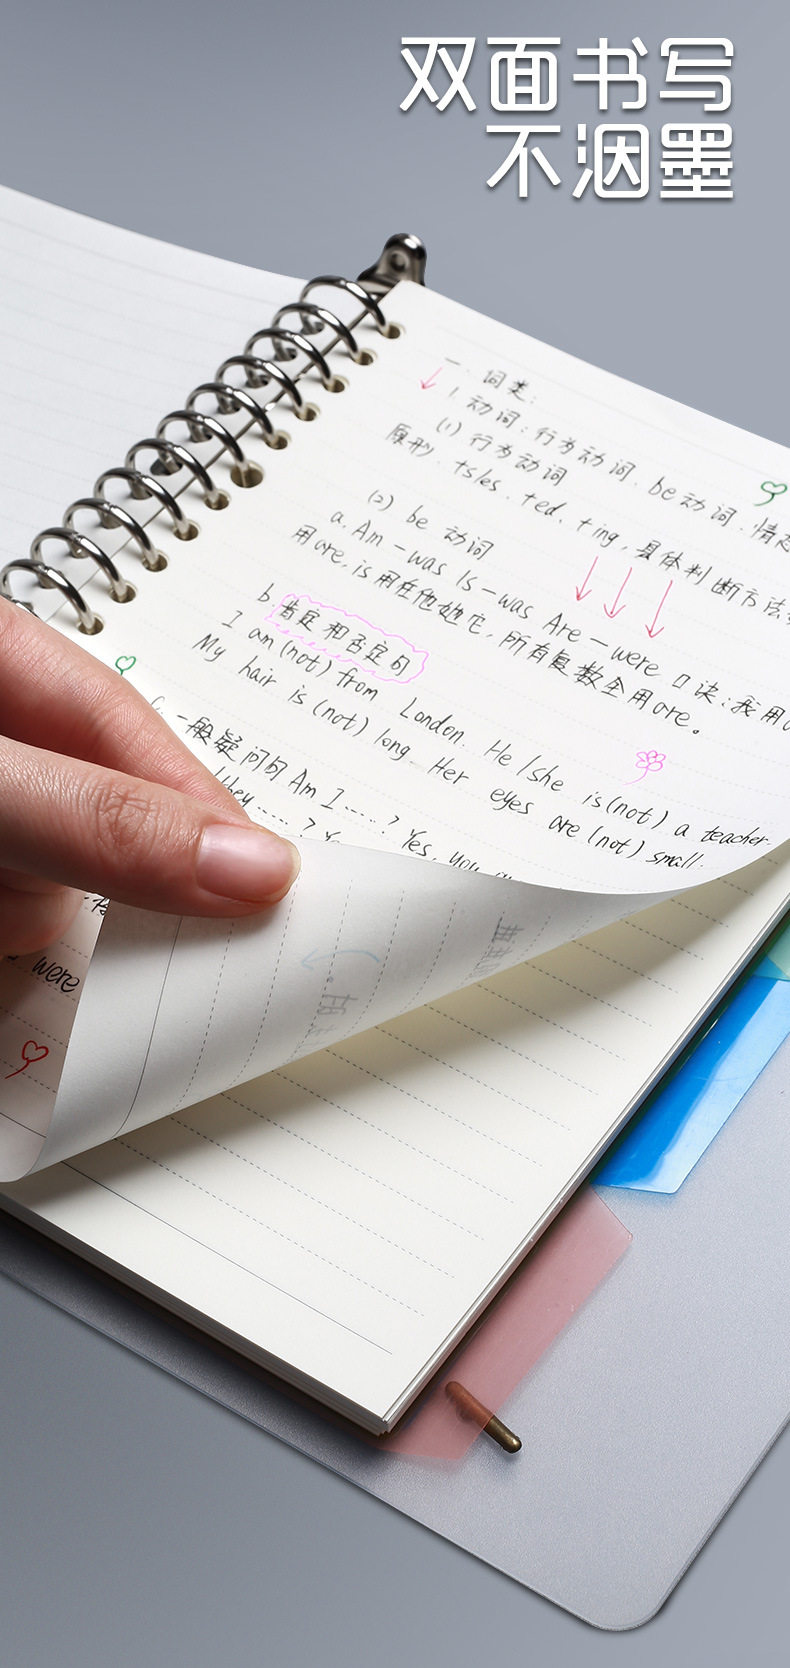 双面书写
不洇墨
一、词类:
1. 动词:行为动词.be动词.情态
(1) 行为动词
原形.+s/es.+ed.+ing,具体判断方法
(2) be 动词
a. Am-was Is-was Are-were 口诀:我用
用are,is用在他她它,所有复数全用are。
b 肯定和否定句
I am (not) from London. He/she is(not) a teacher.
My hair is (not) long. Her eyes are (not) small.
c. 一般疑问句 Am I.....? Yes, you
they.....?
were